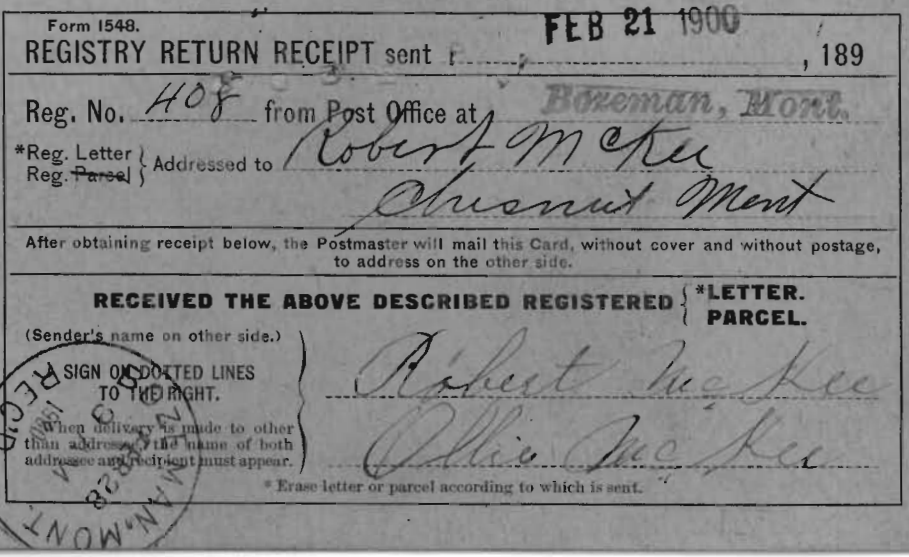 Form 1548.
REGISTRY RETURN RECEIPT sent FEB 21 1900, 189
Reg. No. 408 from Post Office at Bozeman, Mont.
*Reg. Letter
Reg. Parcel } Addressed to Robert McKee
Chesnut Mont
After obtaining receipt below, the Postmaster will mail this Card, without cover and without postage,
to address on the other side.
RECEIVED THE ABOVE DESCRIBED REGISTERED { *LETTER.
PARCEL.
(Sender's name on other side.)
SIGN ON DOTTED LINES
TO THE RIGHT.
Robert McKee
When delivery is made to other
than addressee, the name of both
addressee and recipient must appear.
Ollie McKee
*Erase letter or parcel according to which is sent.
REC'D
MAN. MONT.